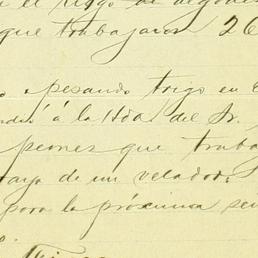 el riego de algodon
que trabajaron 26
pesando trigo en
á la Hda del Sr.
peones que traba
raya de un velador.
para la próxima se